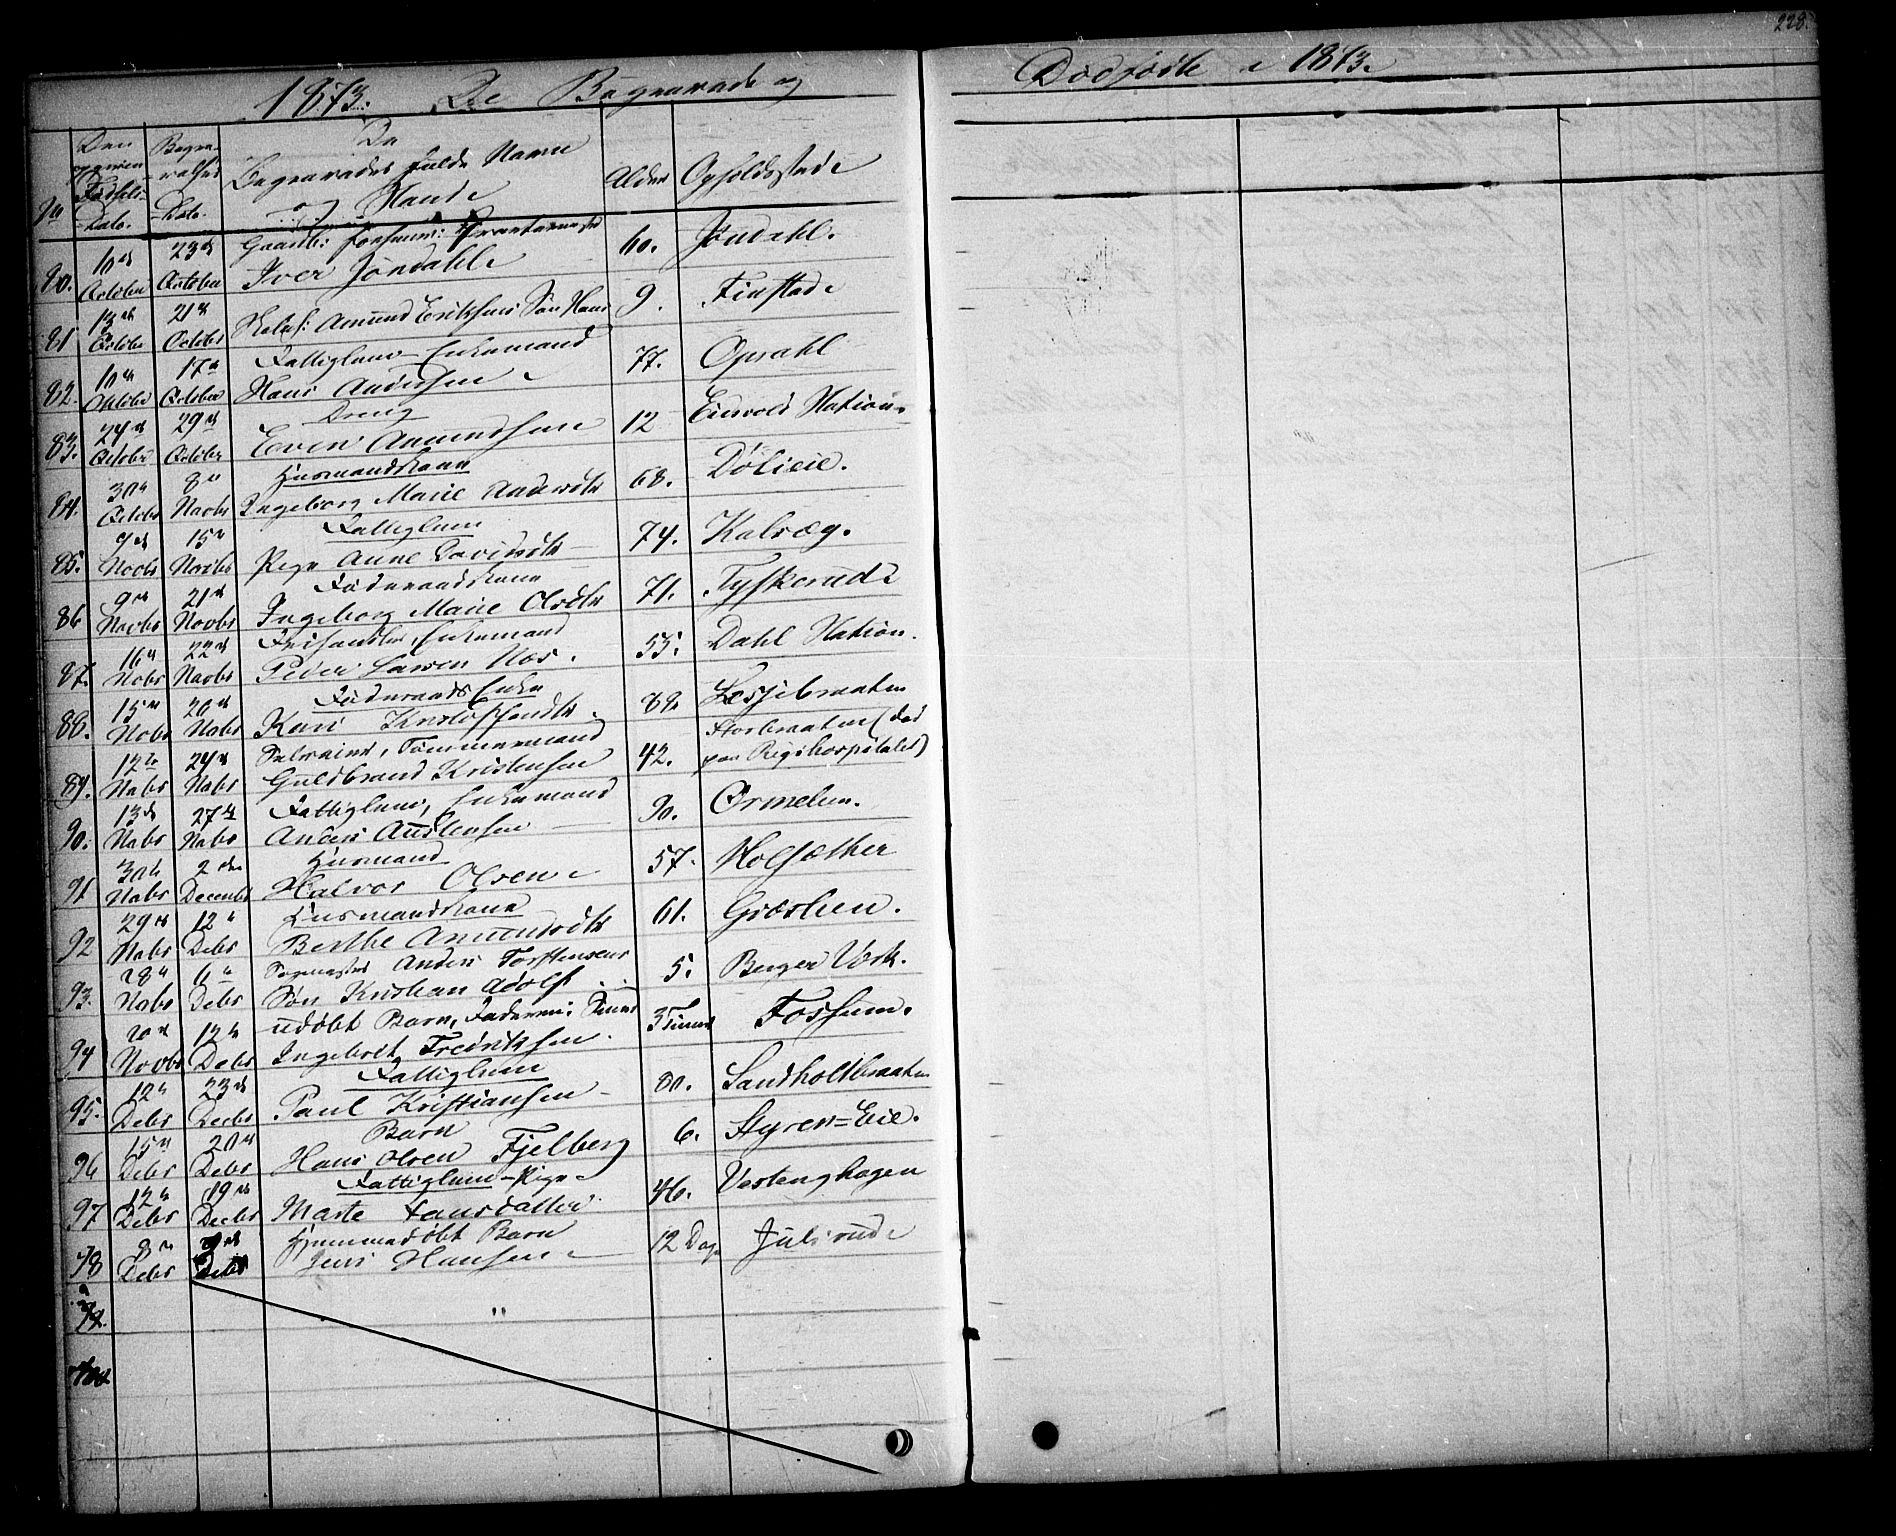 228.
1873. De Begravede og
Dødfødte i 1873.
De
Begravedes fulde Navn
og Stand
Alder
Opholdsstæd
80. 10de October 23de October
Iver Jøndahl
60. Jøndahl.
81 13de Octobr 21de Octobr
Amund Eriksens Søn Hans
9. Finstad
82. 10de Oktober 17de October
Fattiglem Enkemand
Hans Andersen
77. Opsahl
83. 24de Octobr 29de Octobr
Dreng
Even Amundsen
12 Eidsvold Station
84. 30te Octobr 8de Novbr
Husmandskone
Ingeborg Marie Andersdtr
68. Dølieie.
85. 9de Novbr 15de Novbr
Fattiglem
Pige Anne Davidsdtr
74. Kalvæg.
86 9de Novbr 21de Novbr
Føderaadskone
Ingeborg Marie Olsdtr
71. Tyskerud
87. 16de Nobr 22de Novbr
Enkemand
Peder Larsen Næs.
55. Dahl Station.
88. 15de Nobr 20de Nobr
Føderaads Enke
Kari Kristoffersdtr.
82 Læsjebraaten
89. 12te Nobr 24de Nobr
Selveier, Tømmermand
Guldbrand Kristensen
42. Storbraaten (død
paa Rigshospitalet)
90. 13de Nobr 27de Nobr
Fattiglem, Enkemand
Anders Audensen
90. Ormelien.
91 30te Nobr 2den Decembr
Husmand
Halvor Olsen
57. Holsæther
92 29de Nobr 12te Debr
Husmandskone
Berthe Amundsdtr
61. Græslien.
93. 28de Nobr 6te Debr
Sagmester Anders Torstensens
Søn Kristian Adolf
5. Bøger Værk.
94 20de Novbr 12te Debr
udøbt Barn, Faderen:
Ingebret Fredriksen.
3 Timer Fossum.
95. 12te Debr 23de Decbr
Fattiglem
Paul Kristiansen
80. Sandholtbraaten
96 15de Debr 20de Debr
Barn
Hans Olsen Fjelberg
6. Styren=Eie.
97 12te Debr 19de Decbr
Fattiglem - Pige
Marte Larsdatter
46. Vestenghagen
98 8de Debr Debr
Hjemmedøbt Barn
Jens Hansen
12 Dage Julsrud
"